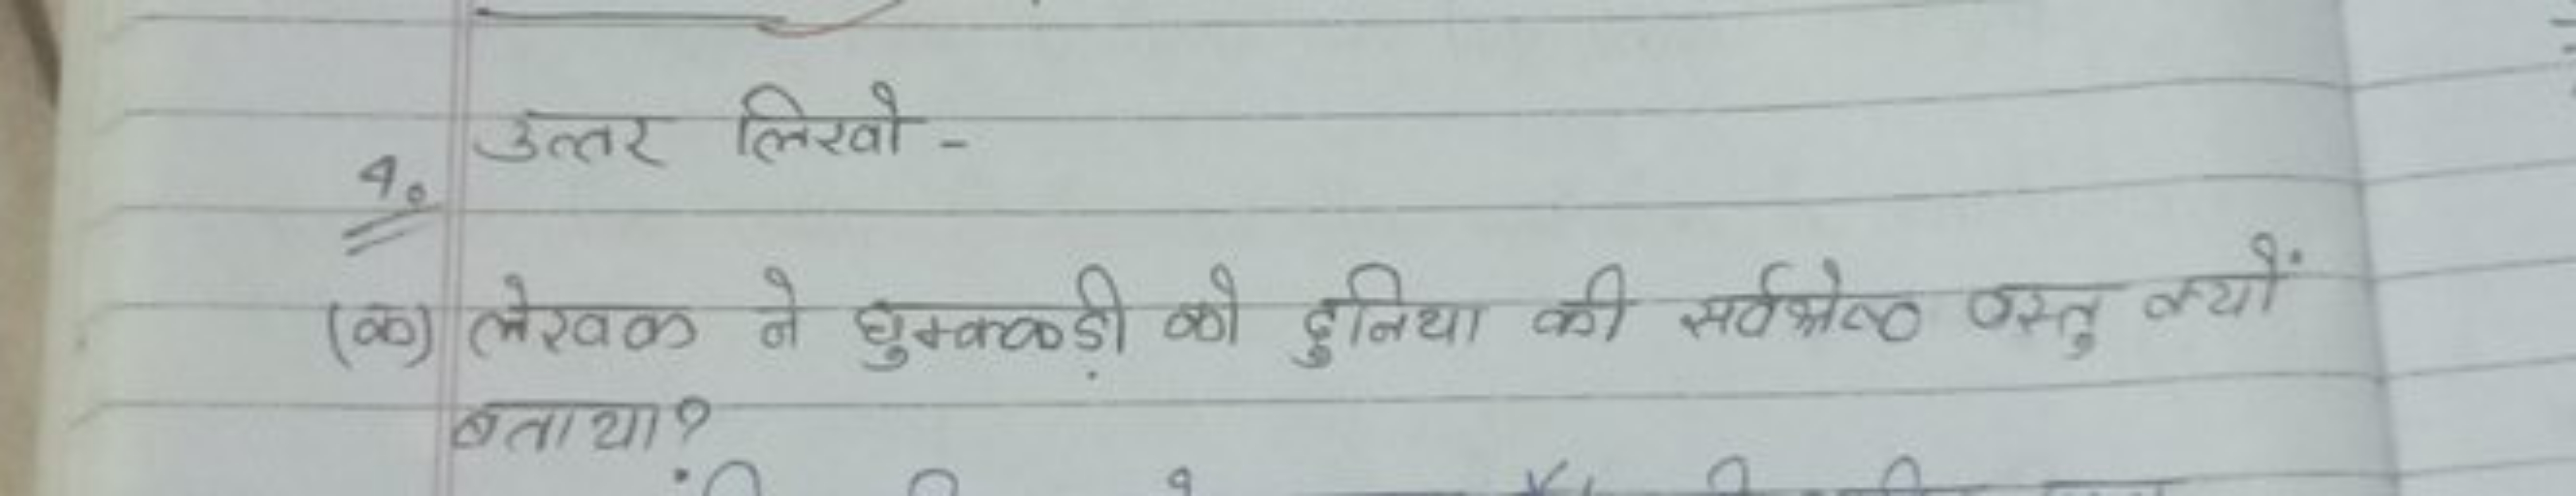 उत्तर लिखो -
1.
(क) लेखक ने घुमक्कड़ी को दुनिया की सर्वश्रेष्ठ वस्तु क्यों
बताया?